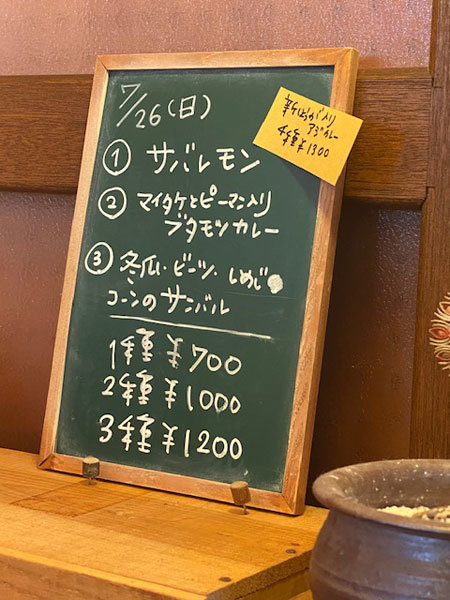 7/26(日)
① サバレモン
② マイタケとピーマン入り
ブタモツカレー
③ 冬瓜・ビーツ・しめじ
コーンのサンバル
1種¥700
2種¥1000
3種¥1200
新じゃが入り
アジカレー
4種¥1300